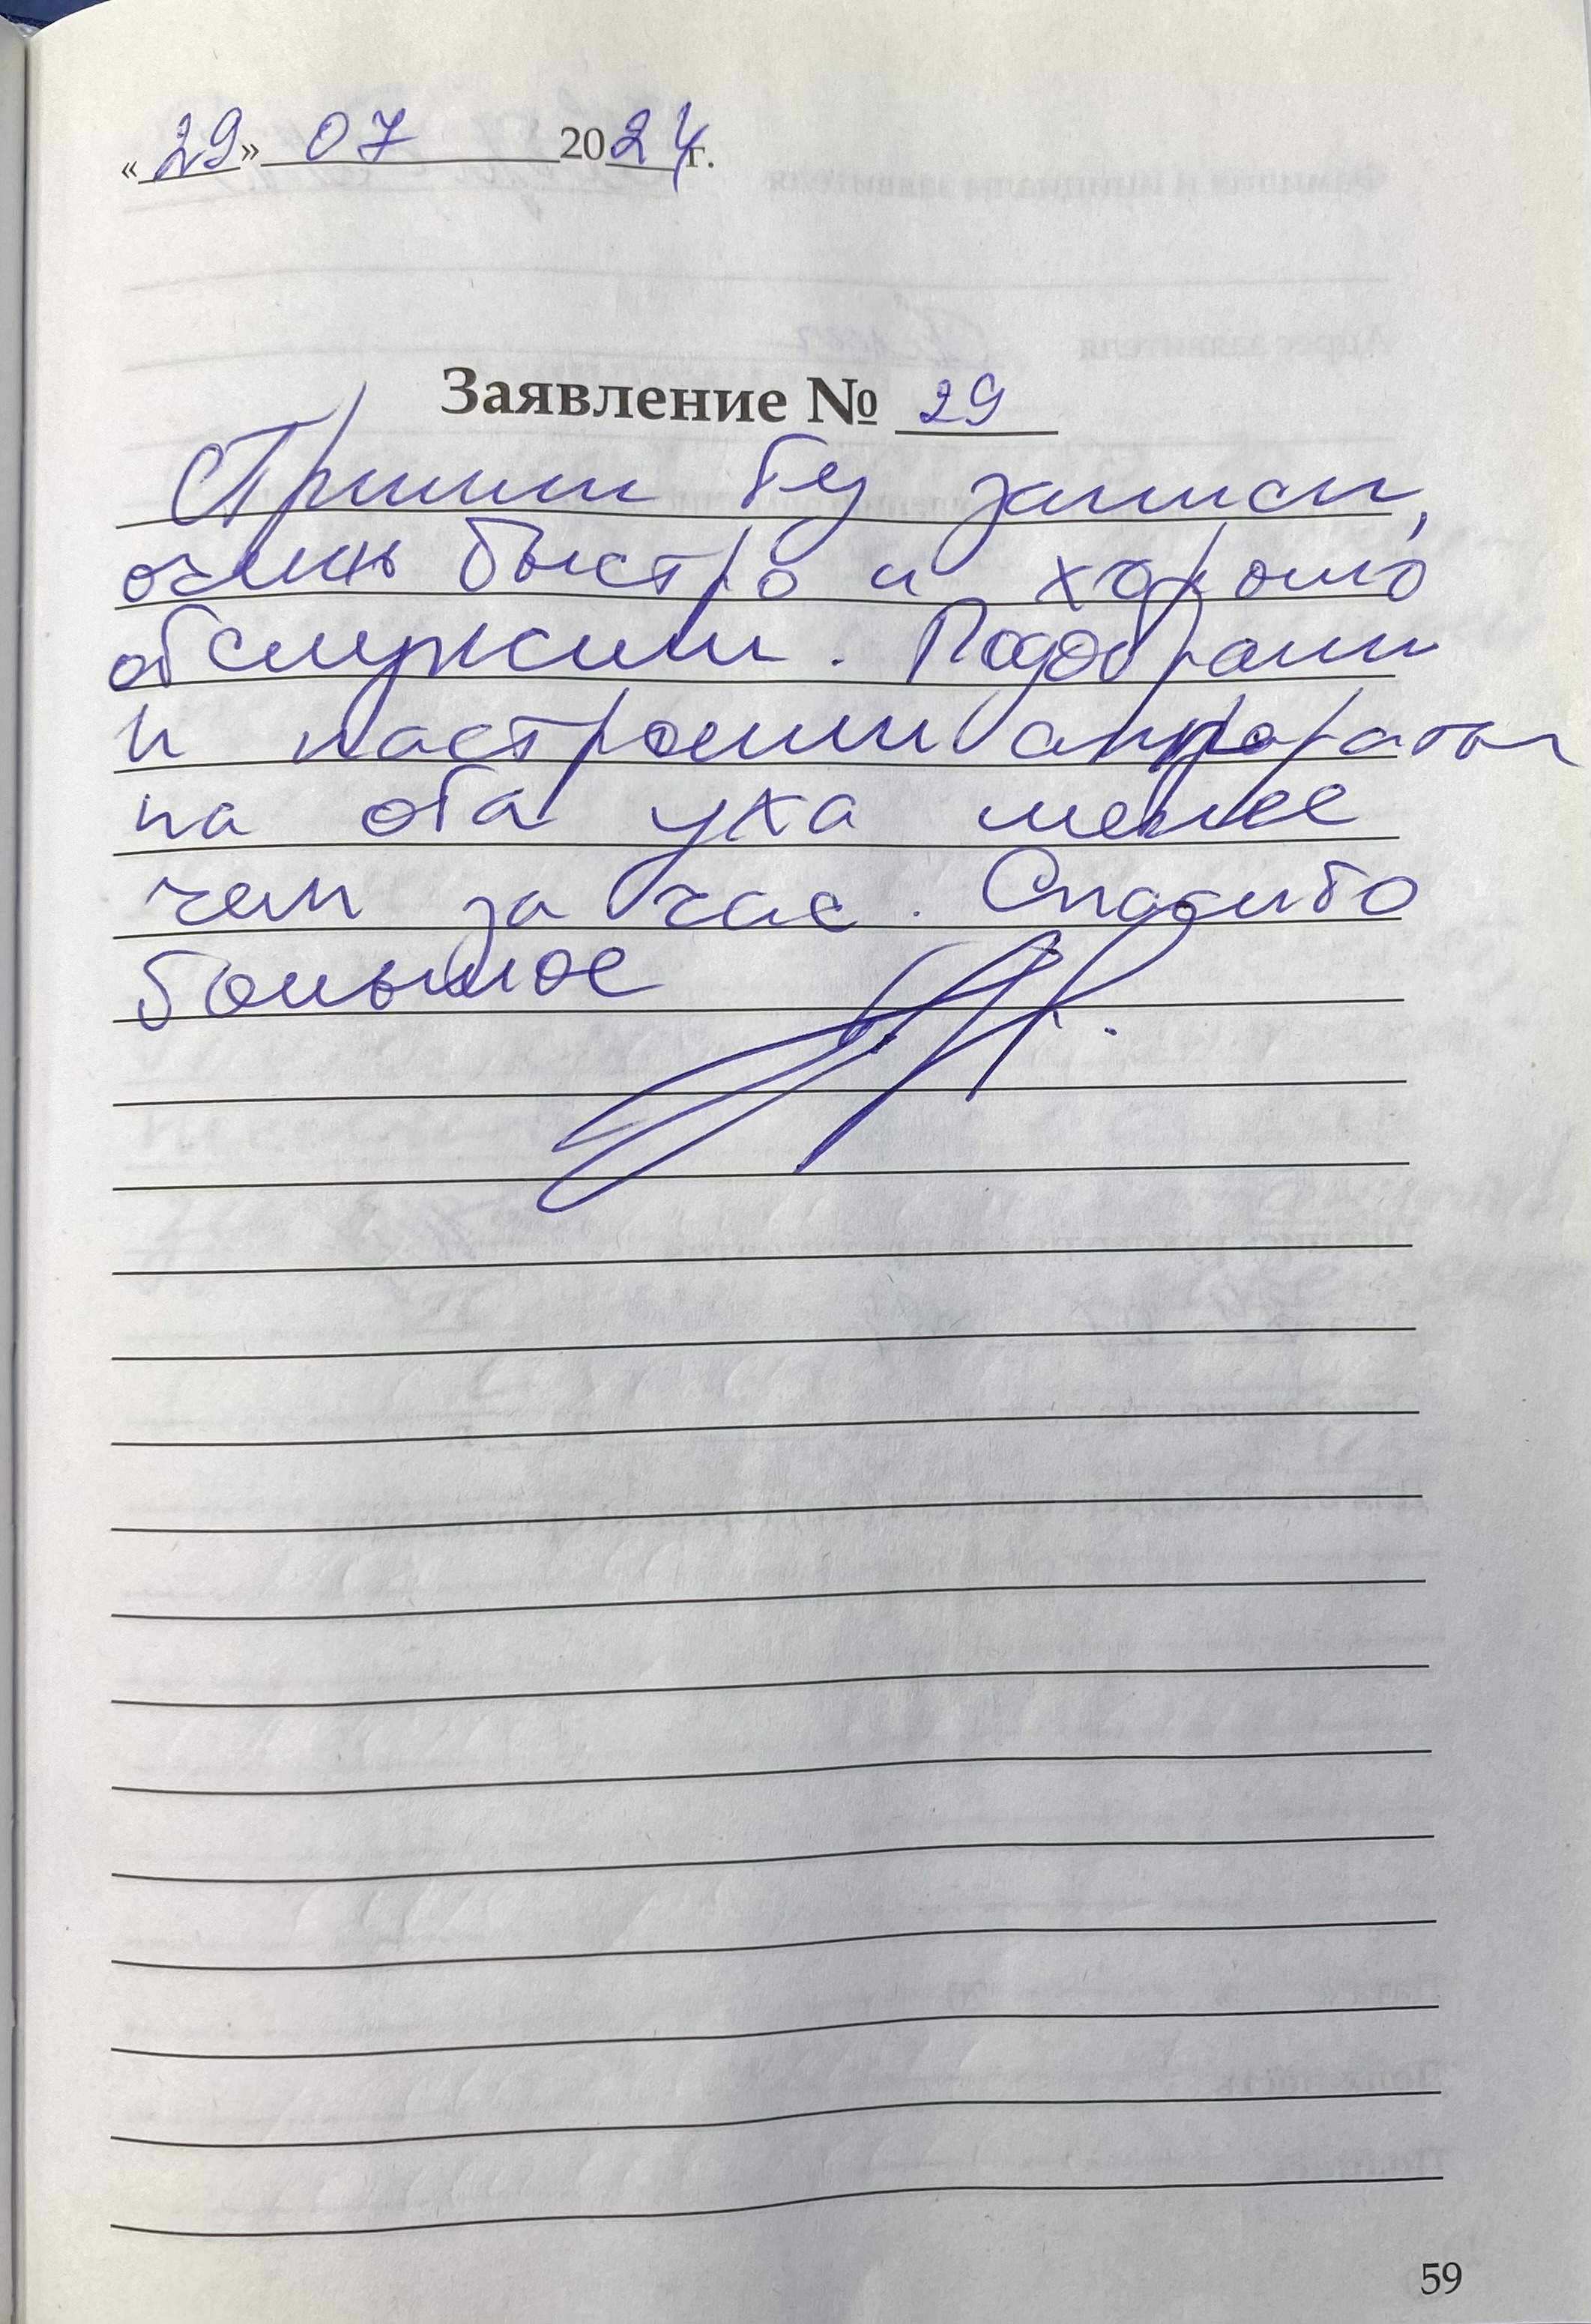 «29» 07 2024 г.
Заявление № 29
Пришли без записи,
очень быстро и хорошо
обслужили. Подобрали
и настроили аппараты
на оба уха менее
чем за час. Спасибо
большое
59